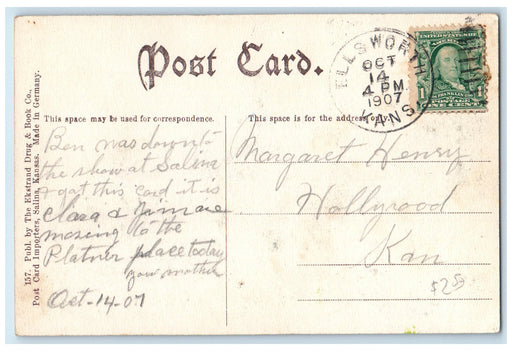 Post Card.
ELLSWORTH
OCT
14
4 PM
1907
KANS.
UNITED STATES
FRANKLIN
POSTAGE
ONE CENT
This space may be used for correspondence.
This space is for the address only.
157. Publ. by The Ekstrand Drug & Book Co.,
Post Card Importers, Salina, Kansas. Made in Germany.
Ben was down to
the show at Salina
& got this card it is
Clara & are
moving to the
Platner place today
your mother
Oct-14-07
Margaret Henry
Hollyrood
Kan